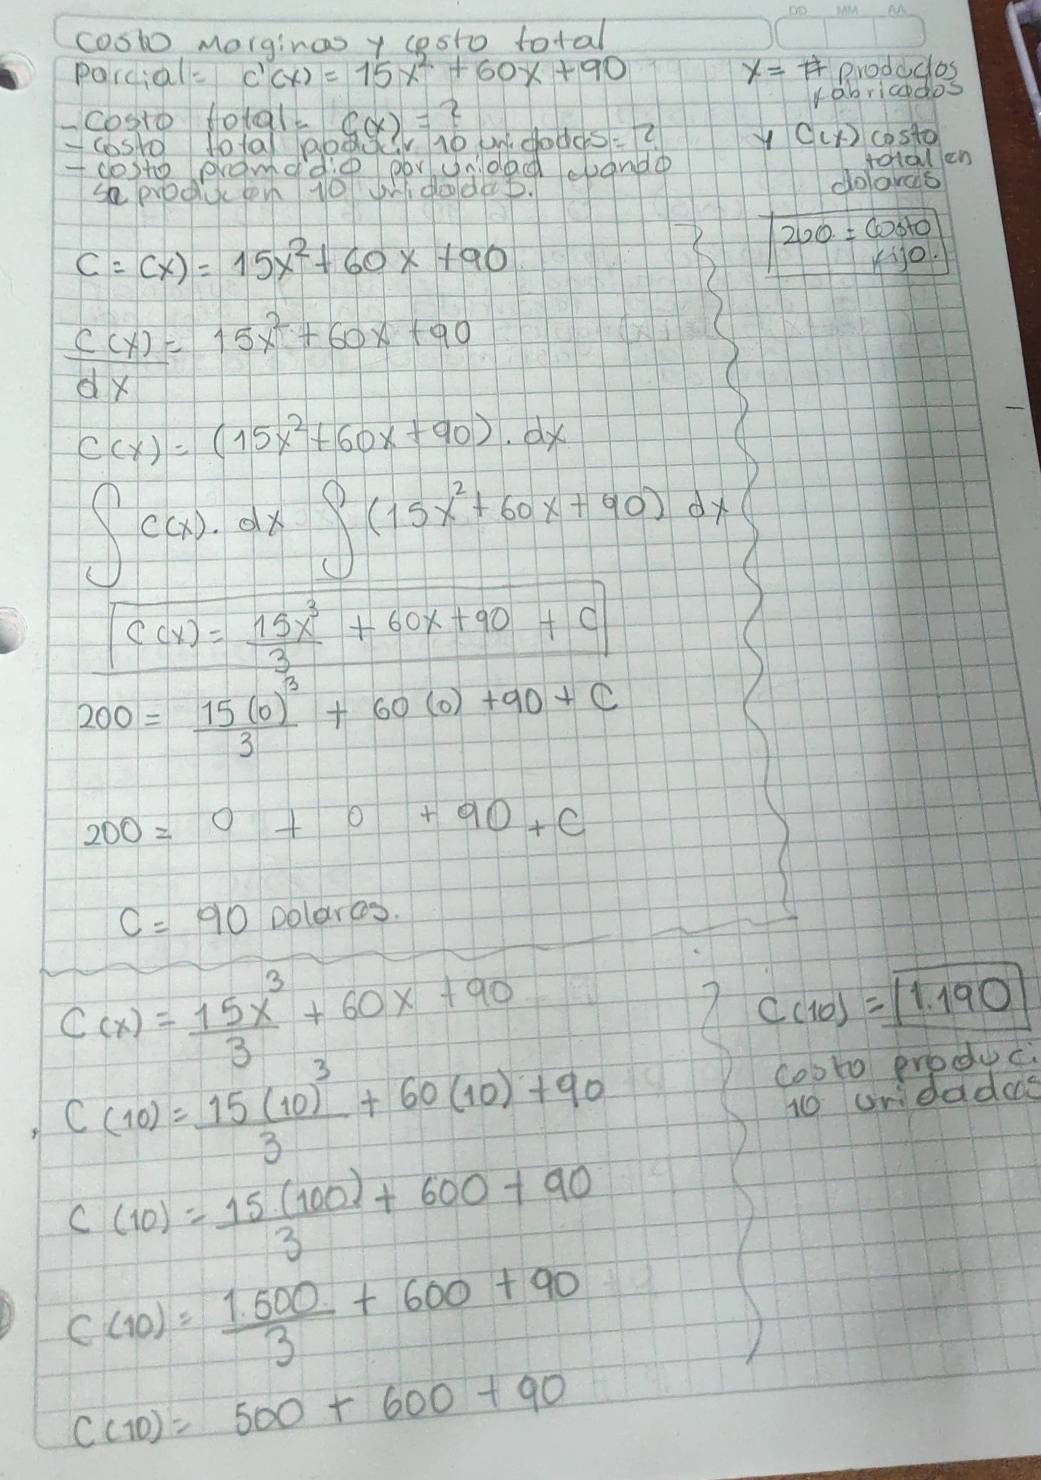 DD MM AA
costo marginas y costo total
parcial= C'(x) = 15x² + 60x + 90
x = # productos
fabricados
- costo total = C(x) = ?
- costo total producir 10 unidades = ?
y C(x) costo
total en
dolares
- costo promedio por unidad cuando
se producen 10 unidades.
200 = costo
fijo.
C = C(x) = 15x² + 60x + 90
C(x) = 15x² + 60x + 90
dx
C(x) = (15x² + 60x + 90) . dx
∫ C(x) . dx ∫ (15x² + 60x + 90) dx
C(x) = 15x³/3 + 60x + 90 + C
200 = 15(0)³/3 + 60(0) + 90 + C
200 = 0 + 0 + 90 + C
C = 90 Dolares.
C(x) = 15x³/3 + 60x + 90
C(10) = 15(10)³/3 + 60(10) + 90
C(10) = 15.(100)/3 + 600 + 90
C(10) = 1.500/3 + 600 + 90
C(10) = 500 + 600 + 90
C(10) = 1.190
costo produci
10 unidades